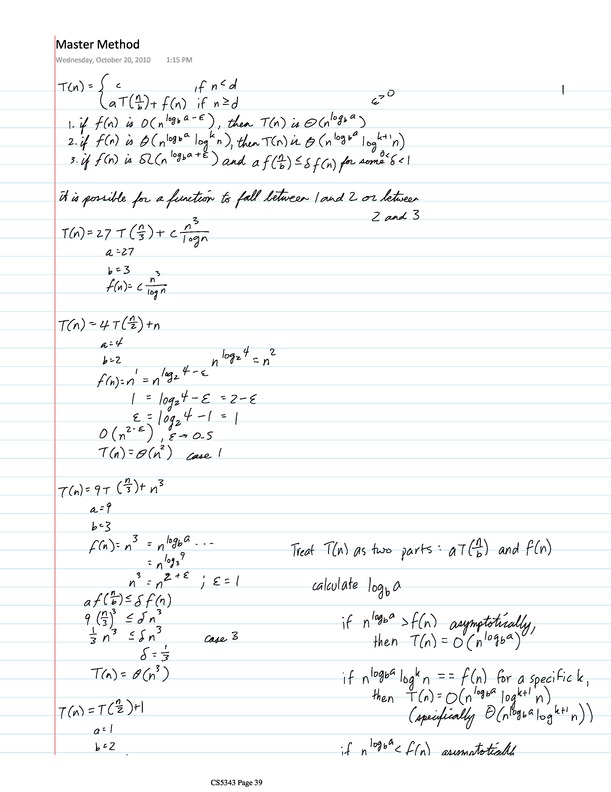 Master Method
Wednesday, October 20, 2010 1:15 PM
T(n) = { c if n < d
aT(n/b) + f(n) if n ≥ d ε>0
1. if f(n) is O(n^(log_b a - ε), then T(n) is Θ(n^(log_b a))
2. if f(n) is Θ(n^(log_b a) log^k n), then T(n) is Θ(n^(log_b a) log^(k+1) n)
3. if f(n) is Ω(n^(log_b a + ε)) and a f(n/b) ≤ δ f(n) for some 0< δ < 1
it is possible for a function to fall between 1 and 2 or between
2 and 3
T(n) = 27 T(n/3) + c n^3/log n
a = 27
b = 3
f(n) = c n^3/log n
T(n) = 4 T(n/2) + n
a = 4
b = 2 n^(log_2 4) = n^2
f(n) = n^1 = n^(log_2 4 - ε)
1 = log_2 4 - ε = 2 - ε
ε = log_2 4 - 1 = 1
O(n^(2-ε)), ε → 0.5
T(n) = Θ(n^2) case 1
T(n) = 9T(n/3) + n^3
a = 9
b = 3
f(n) = n^3 = n^(log_b a) ...
= n^(log_3 9)
n^3 = n^(2+ε) ; ε = 1
a f(n/b) ≤ δ f(n)
9(n/3)^3 ≤ δ n^3
1/3 n^3 ≤ δ n^3 case 3
δ = 1/3
T(n) = Θ(n^3)
T(n) = T(n/2) + 1
a = 1
b = 2
Treat T(n) as two parts: aT(n/b) and f(n)
calculate log_b a
if n^(log_b a) > f(n) asymptotically,
then T(n) = O(n^(log_b a))
if n^(log_b a) log^k n == f(n) for a specific k,
then T(n) = O(n^(log_b a) log^(k+1) n)
(specifically Θ(n^(log_b a) log^(k+1) n))
if n^(log_b a) < f(n) asymptotically
CS5343 Page 39